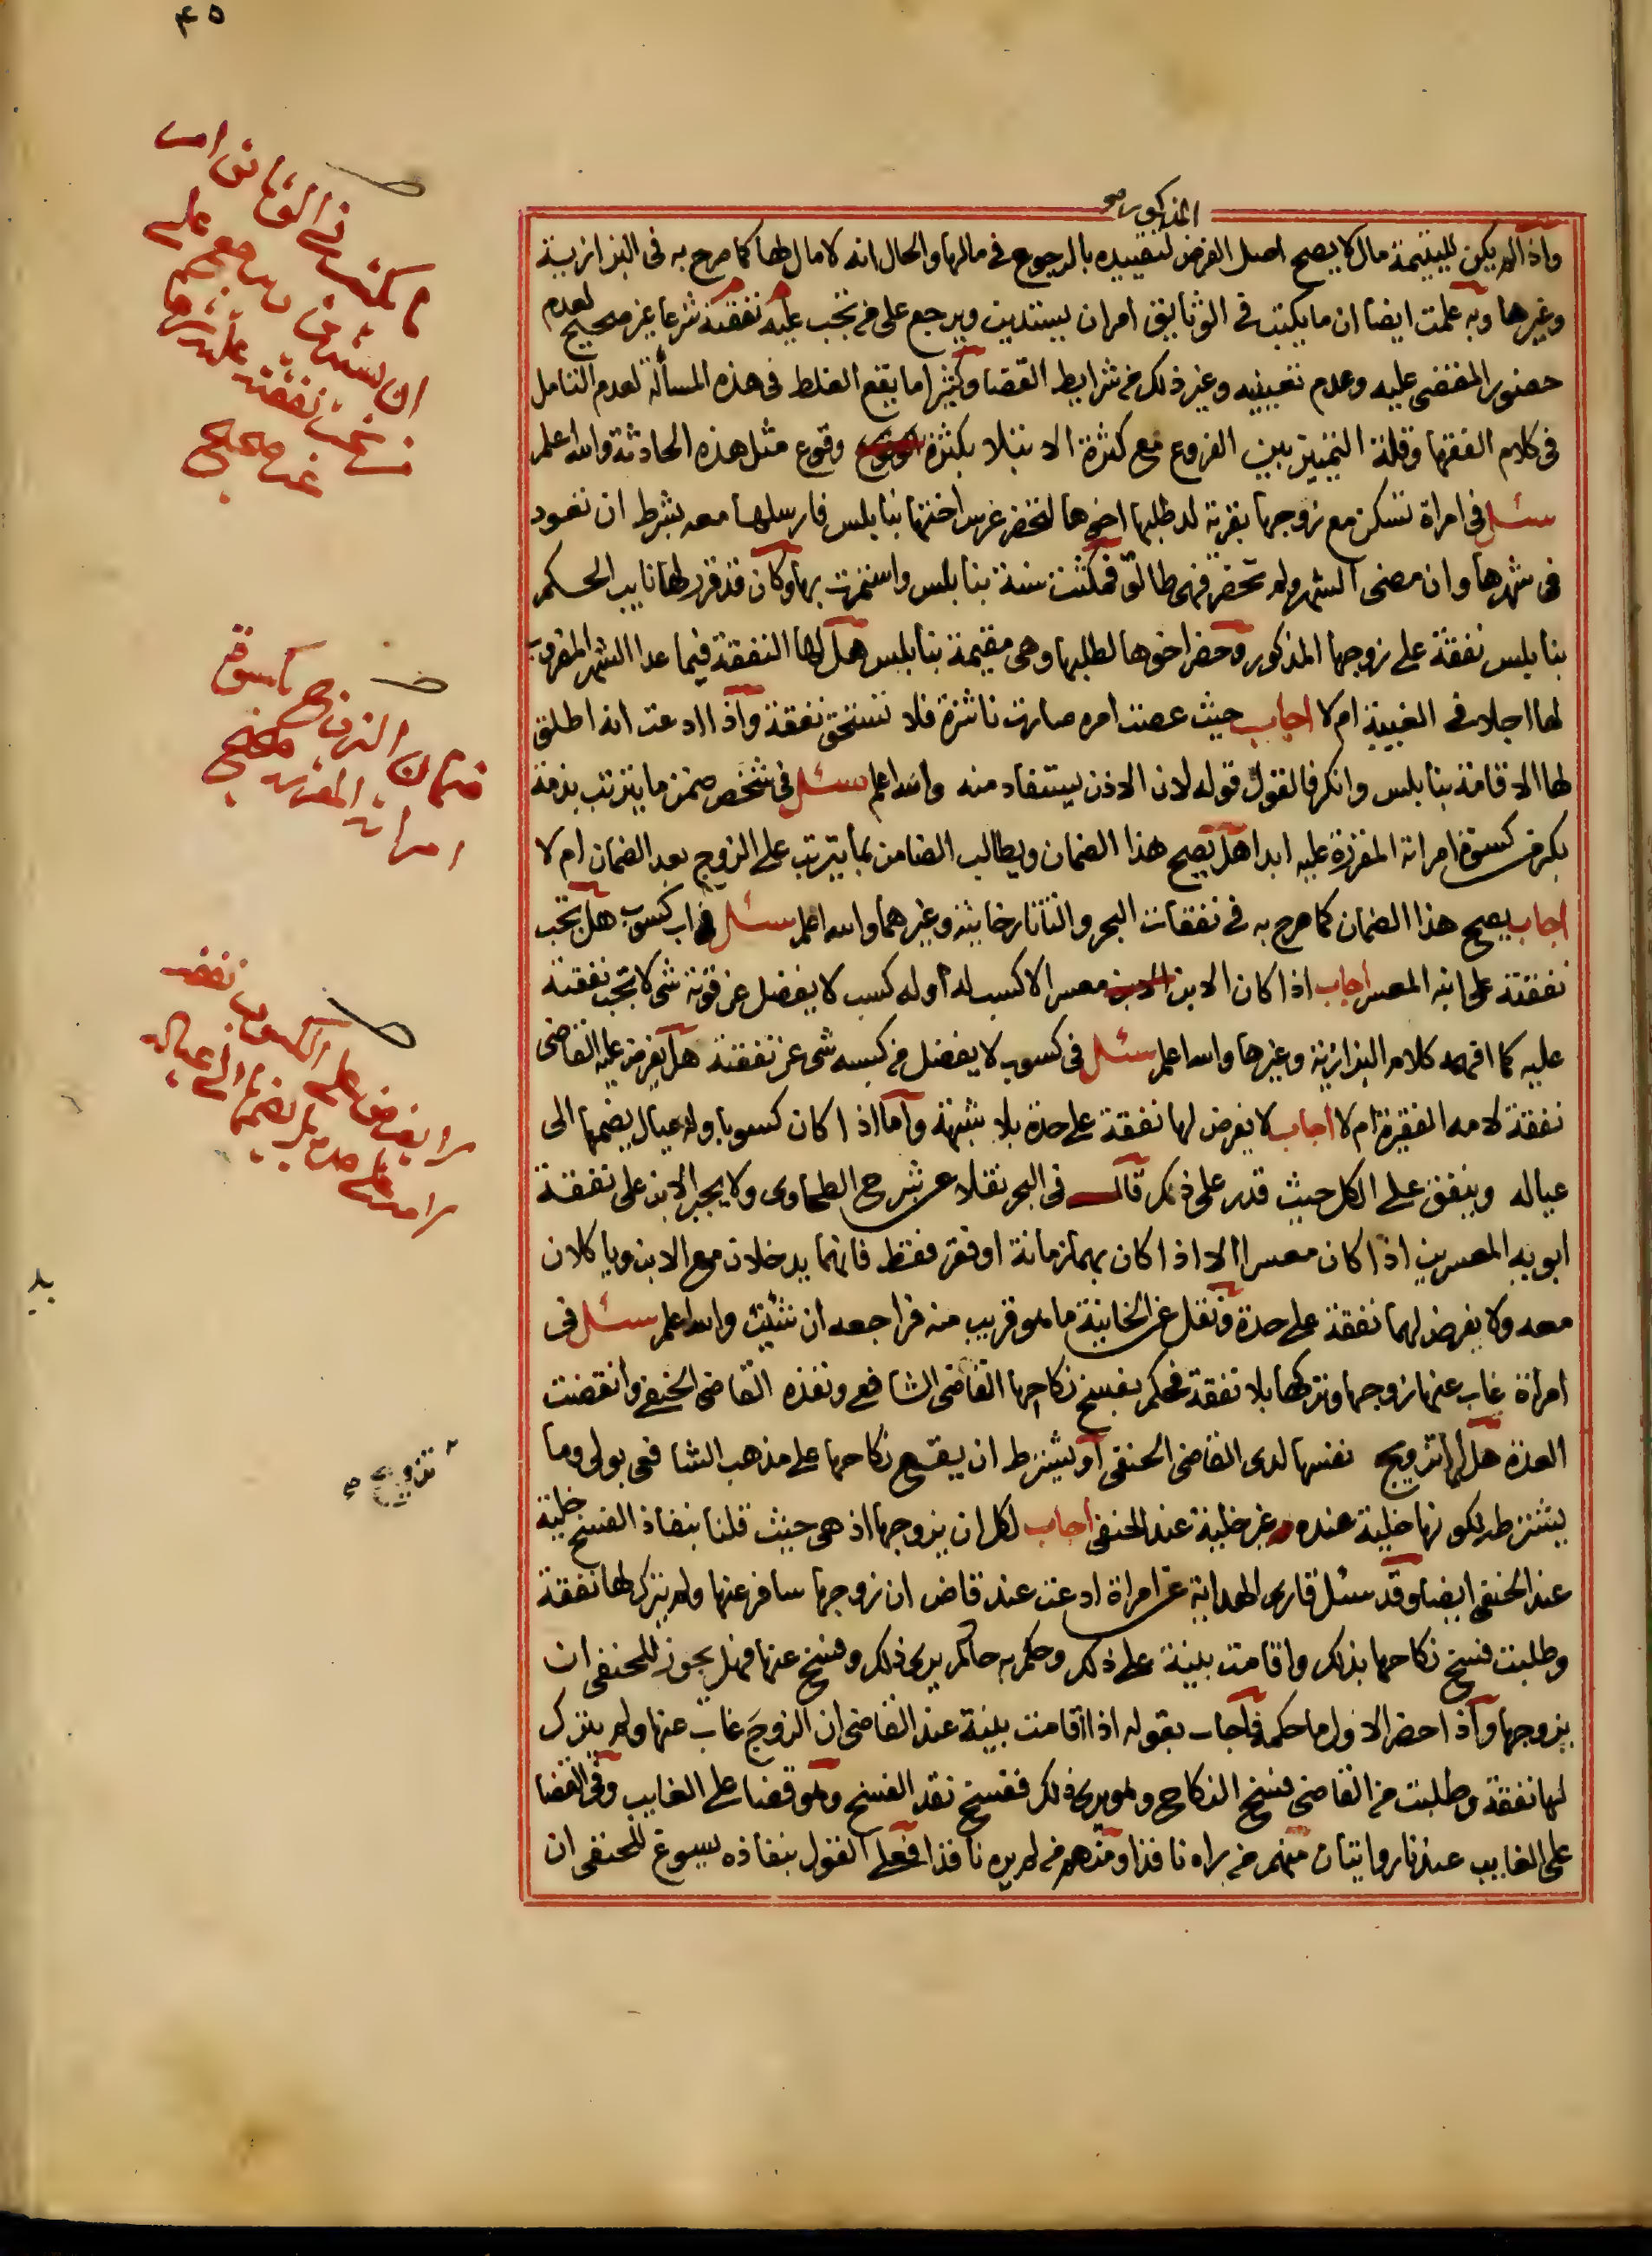 ٤٥
المذكور صح
واذا لم يكن لليتيمة مال لا يصح اصل الفرض لتقييده بالرجوع في مالها والحال انه لا مال لها كما صرح به في البزازية
وغيرها وبه علمت ايضا ان ما يكتب في الوثايق امر ان يستدين ويرجع على من تجب عليه نفقته شرعا غير صحيح لعدم
حضور المقضى عليه وعدم تعيينه وغير ذلك من شرايط القضا وكثيرا ما يقع الغلط في هذه المسألة لعدم التامل
في كلام الفقها وقلة التمييز بين الفروع مع كثرة الابتلا بكثرة وقوع مثل هذه الحادثة والله اعلم
سئل في امراة تسكن مع زوجها بقرية لد طلبها اخوها لتحضر عرس اختها بنابلس فارسلها معه بشرط ان تعود
في شهرها وان مضى الشهر ولم تحضر فهى طالق فمكثت سنة بنابلس واستمرت بها وكان قد قرر لها نايب الحكم
بنابلس نفقة على زوجها المذكور وحضر اخوها لطلبها وهى مقيمة بنابلس هل لها النفقة فيما عدا الشهر المضروب
لها اجلا في الغيبة ام لا اجاب حيث عصت امره صارت ناشزة فلا تستحق نفقة واذا ادعت انه اطلق
لها الاقامة بنابلس وانكر فالقول قوله لان الاذن يستفاد منه والله اعلم سئل في شخص ضمن ما يترتب بذمة
بكر من كسوة امراته المقررة عليه ابدا هل يصح هذا الضمان ويطالب الضامن بما يترتب على الزوج بعد الضمان ام لا
اجاب يصح هذا الضمان كما صرح به في نفقات البحر والتتارخانية وغيرهما والله اعلم سئل في اب كسوب هل تجب
نفقته على ابنه المعسر اجاب اذا كان الابن معسرا لا كسب له او له كسب لا يفضل عن قوته شى لا تجب نفقته
عليه كما افهمه كلام البزازية وغيرها والله اعلم سئل في كسوب لا يفضل من كسبه شى عن نفقته هل يفرض عليه القاضى
نفقة لامه الفقيرة ام لا اجاب لا يفرض لها نفقة على حدة بلا شبهة واما اذا كان كسوبا وله عيال يضمها الى
عياله وينفق على الكل حيث قدر على ذلك قال في البحر نقلا عن شرح الطحاوى ولا يجبر الابن على نفقة
ابويه المعسرين اذا كان معسرا الا اذا كان بهما زمانة او فقر فقط فانهما يدخلان مع الابن وياكلان
معه ولا يفرض لهما نفقة على حدة ونقل عن الخانية ما هو قريب منه فراجعه ان شئت والله اعلم سئل في
امراة غاب عنها زوجها وتركها بلا نفقة فحكم بفسخ نكاحها القاضى الشافعى ونفذه القاضى الحنفى وانقضت
العدة هل لها تزويج نفسها لدى القاضى الحنفى او يشترط ان يقع نكاحها على مذهب الشافعى بولى وما
يشترط لكونها خلية عنده غير خلية عند الحنفى اجاب لكل ان يزوجها اذ هى حيث قلنا بنفاذ الفسخ خلية
عند الحنفى ايضا وقد سئل قارى الهداية عن امراة ادعت عند قاض ان زوجها سافر عنها ولم يترك لها نفقة
وطلبت فسخ نكاحها بذلك واقامت بينة على ذلك وحكم به حاكم يرى ذلك وفسخ عنها فهل يجوز للحنفى ان
يزوجها واذا حضر الاول ما حكمه فاجاب بقوله اذا اقامت بينة عند القاضى ان الزوج غاب عنها ولم يترك
لها نفقة وطلبت من القاضى فسخ النكاح وهو يرى ذلك ففسخ نفذ الفسخ وهو قضا على الغايب وفي القضا
على الغايب عندنا روايتان منهم من يراه نافذا ومنهم من لم يره نافذا فعلى القول بنفاذه يسوغ للحنفى ان
ما يكتب في الوثايق امر
ان يستدين ويرجع على
من تجب نفقته عليه شرعا
غير صحيح
ضمان الزوج كسوة
امراته المقررة صحيح
لا يفرض على الكسوب نفقة
لامه على حدة بل يضمها الى عياله
تزويج صح